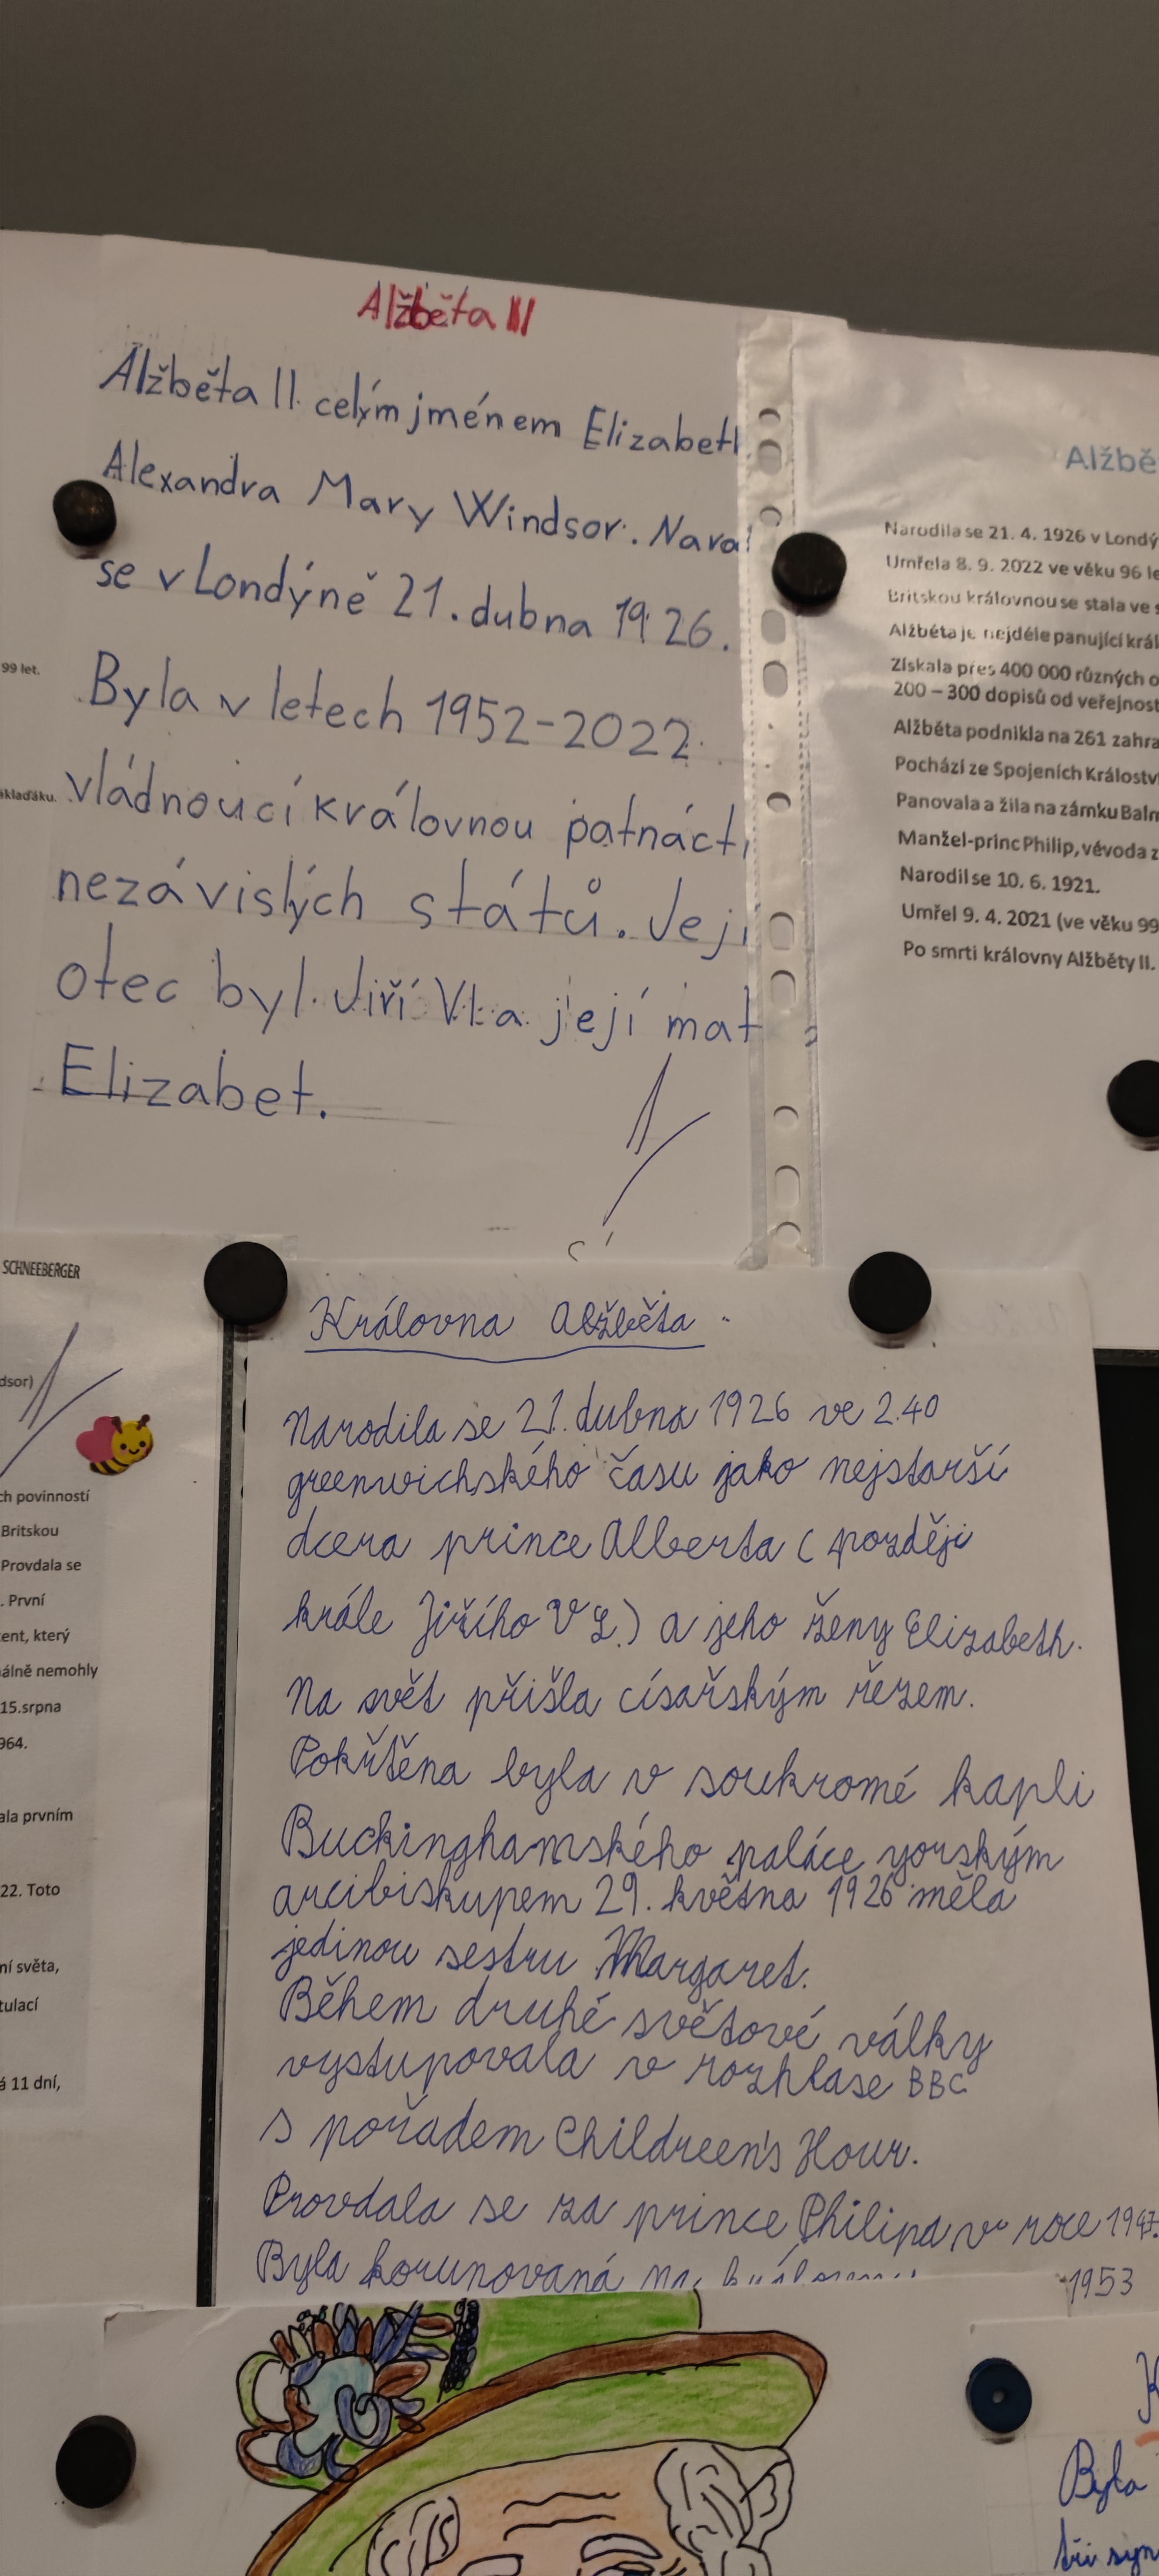 Alžběta II
Alžběta II. celým jménem Elizabeth
Alexandra Mary Windsor. Narod
se v Londýně 21. dubna 1926.
Byla v letech 1952-2022
vládnoucí královnou patnácti
nezávislých států. Její
otec byl Jiří VI. a její mat
Elizabet.
Alžbě
Narodila se 21. 4. 1926 v Londý
Umřela 8. 9. 2022 ve věku 96 le
Britskou královnou se stala ve s
Alžběta je nejdéle panující král
Získala přes 400 000 různých o
200 – 300 dopisů od veřejnost
Alžběta podnikla na 261 zahra
Pochází ze Spojeních Královstv
Panovala a žila na zámku Balm
Manžel-princ Philip, vévoda z
Narodil se 10. 6. 1921.
Umřel 9. 4. 2021 (ve věku 99
Po smrti královny Alžběty II.
99 let.
ákladáku.
SCHNEEBERGER
dsor)
ch povinností
Britskou
Provdala se
. První
ent, který
álně nemohly
15.srpna
964.
ala prvním
22. Toto
ní světa,
tulací
á 11 dní,
Královna Alžběta
Narodila se 21. dubna 1926 ve 2.40
greenwichského času jako nejstarší
dcera prince Alberta (později
krále Jiřího VI.) a jeho ženy Elizabeth.
Na svět přišla císařským řezem.
Pokřtěna byla v soukromé kapli
Buckinghamského paláce yorským
arcibiskupem 29. května 1926 měla
jedinou sestru Margaret.
Během druhé světové války
vystupovala v rozhlase BBC
s pořadem Childreen's Hour.
Provdala se za prince Philipa v roce 1947.
Byla korunovaná na
1953
K
Byla
tři syn